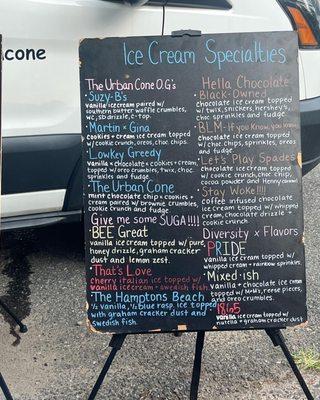 cone
Ice Cream Specialties
The Urban Cone O.G's
• Suzy-B's
vanilla icecream paired w/
southern butter waffle crumbles,
wc, sb drizzle, c-top.
• Martin x Gina
cookies + cream ice cream topped
w/ cookie crunch, oreos, choc. chips.
• Lowkey Greedy
vanilla + chocolate + cookies + cream,
topped w/ oreo crumbles, twix, choc.
sprinkles and fudge.
• The Urban Cone
mint chocolate chip + cookies + cream
paired w/ brownie crumbles,
cookie crunch and fudge.
Give me some SUGA!!!!
• BEE Great
vanilla ice cream topped w/ pure
honey drizzle, graham cracker
dust and lemon zest.
• That's Love
cherry italian ice topped w/
vanilla icecream + swedish fish.
• The Hamptons Beach
½ vanilla, ½ blue rasp. ice topped
with graham cracker dust and
swedish fish.
Hella Chocolate
• Black-Owned
chocolate ice cream topped
w/ twix, snickers, hershey's,
choc sprinkles and fudge.
• BLM- If you Know, you know
chocolate ice cream topped
w/ choc. chips, sprinkles, oreos
and fudge.
• Let's Play Spades
chocolate ice cream topped
w/ cookie crunch, choc. chips,
cocoa powder and Henny caramel
• Stay Woke!!!!
coffee infused chocolate
ice cream topped w/ whipped
cream, chocolate drizzle +
cookie crunch.
Diversity x Flavors
• PRIDE
vanilla ice cream topped w/
whipped cream + rainbow sprinkles.
• Mixed·ish
vanilla + chocolate ice cream
topped w/ M+M's, reese pieces,
and oreo crumbles.
• 1865
vanilla ice cream topped w/
nutella + graham cracker dust